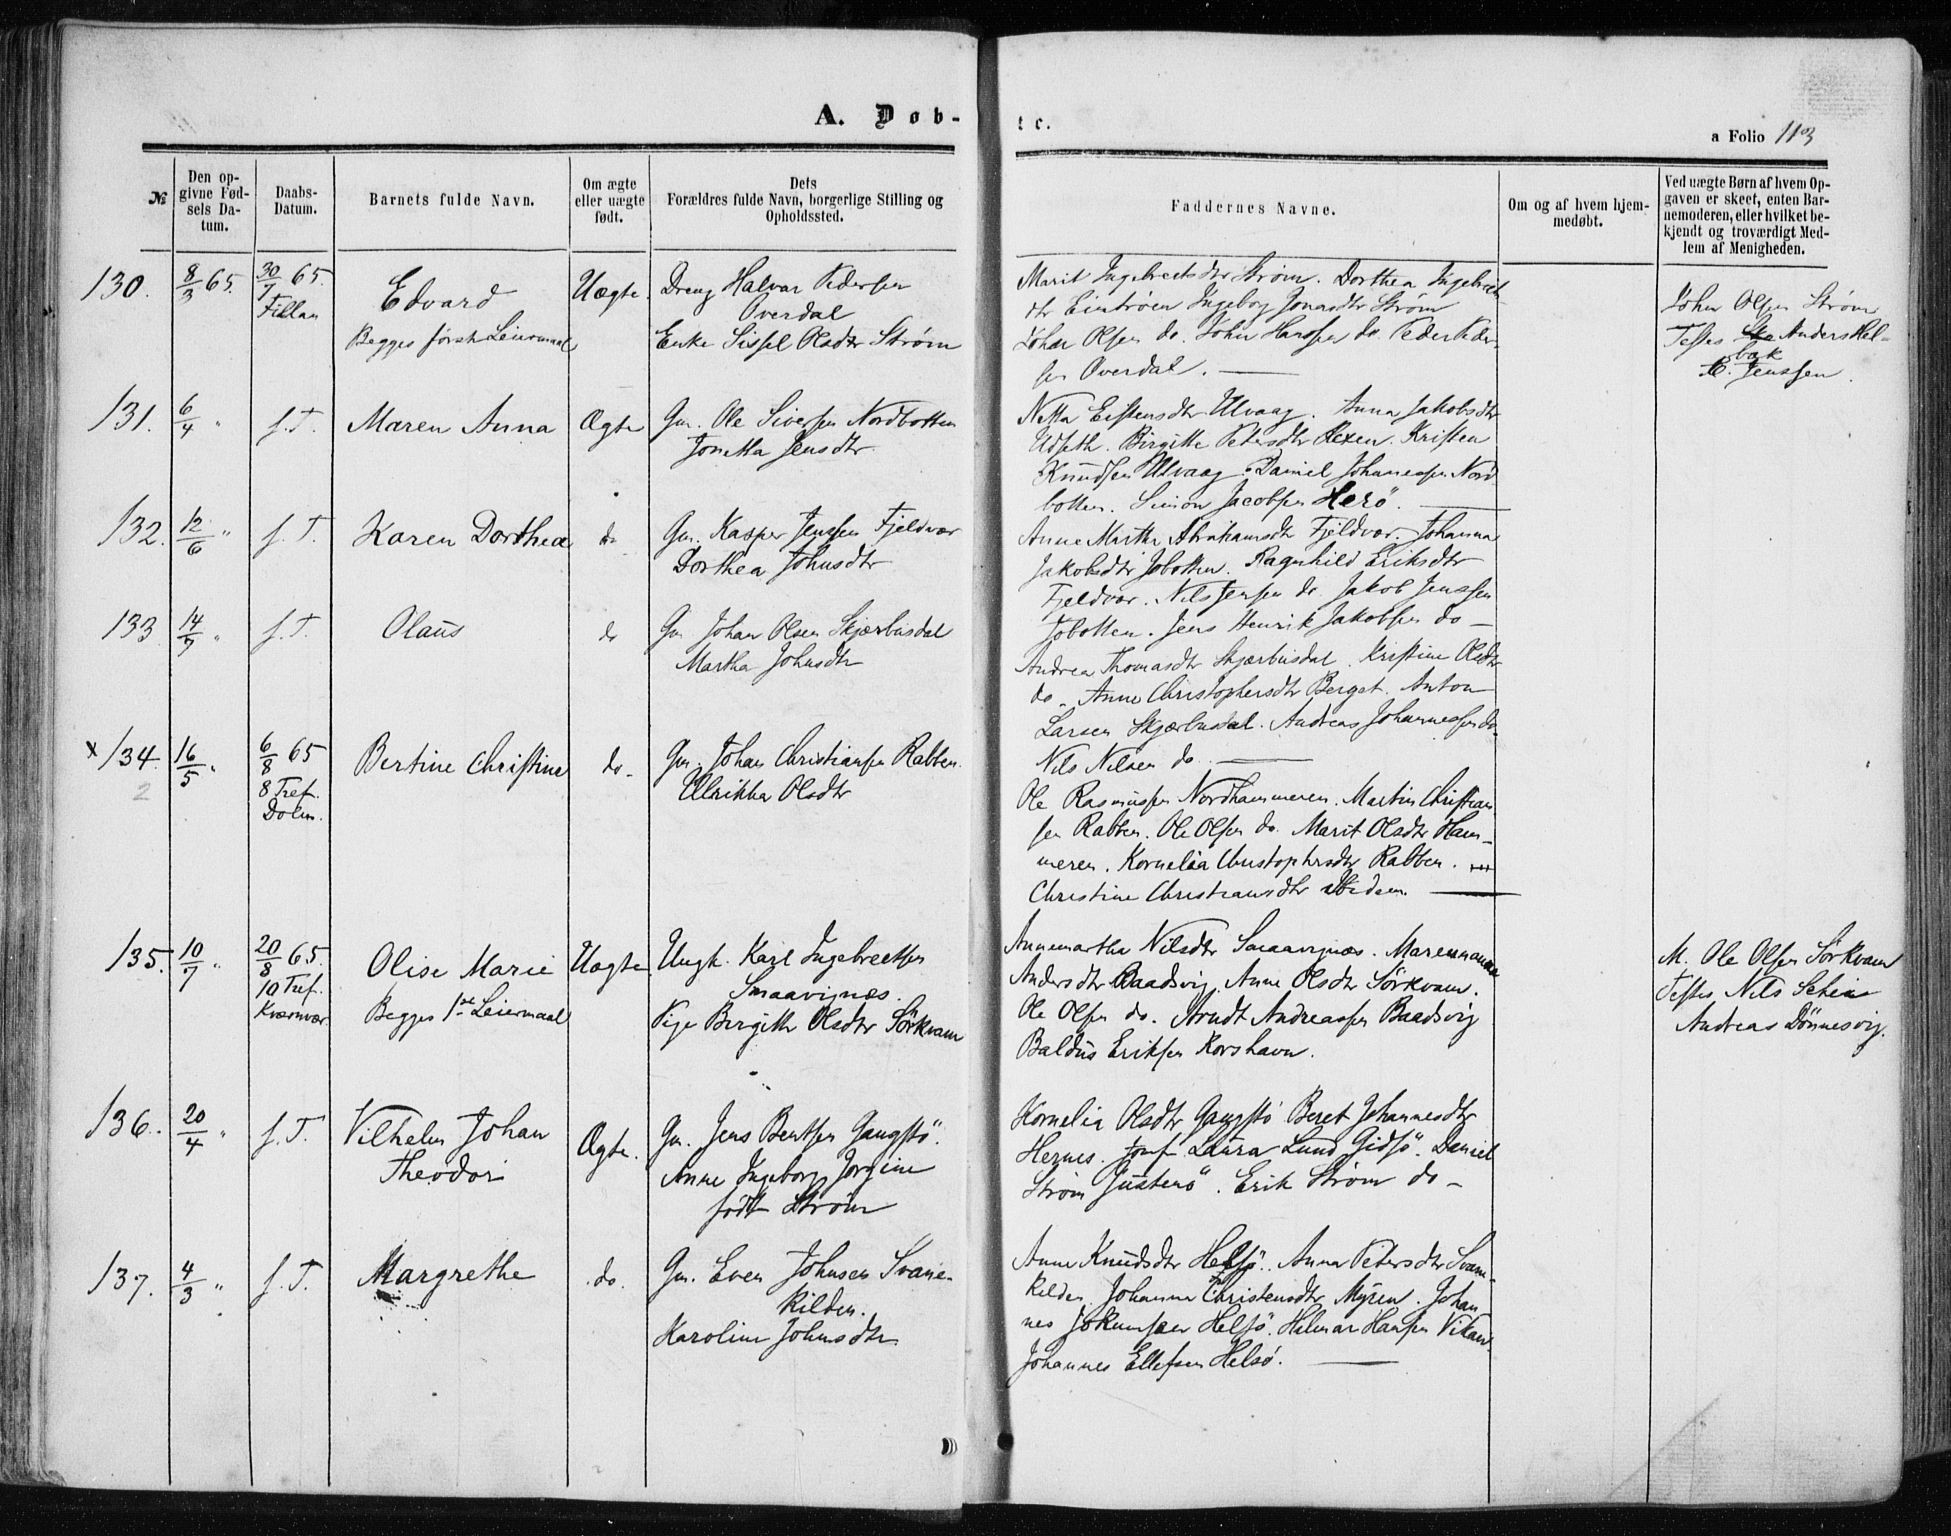 A. Døb-
te.
a Folio 113
№
Den op-
givne Fød-
sels Da-
tum.
Daabs-
Datum.
Barnets fulde Navn.
Om ægte
eller uægte
født.
Dets
Forældres fulde Navn, borgerlige Stilling og
Opholdssted.
Faddernes Navne.
Om og af hvem hjem-
medøbt.
Ved uægte Børn af hvem Op-
gaven er skeet, enten Bar-
nemoderen, eller hvilket be-
kjendt og troværdigt Med-
lem af Menigheden.
130. 8/3 65. 30/7 65. Fillan
Edvard
Begges første Leiermaal
Uægte.
Dreng Halvar Pedersen
Overdal
Enke Sissel Olsdtr Strøm
Marit Ingebretsdtr Strøm. Dorthea Ingebrets
dtr Ingeborg Jonasdtr Strøm
Johan Olsen do. John Hanssen do. Peder Peder-
sen Overdal.
Johan Olsen Strøm
Testes Anders Hel-
bak
Jenssen.
131. 6/4 " s. T.
Maren Anna
Ægte
Gm. Ole Siversen Nordbotten
Jonetta Jensdtr
Netta Ulvaag. Anna Jakobsdtr
Udseth. Birgitte Petersdtr Hexen. Kristen
Knudsen Ulvaag. Daniel Johannesen Nord
botten. Simon Jacobsen Herö.
132. 12/6 " s. T.
Karen Dorthea
do
Gm. Kasper Jenssen Fjeldvær
Dorthea Johnsdtr
Anne Martha Abrahamsdtr Fjeldvær. Johanna
Jakobsdtr Jøbotten. Ragnhild Eriksdtr
Fjeldvær. Nils Jensen do. Jakob Jenssen
Jøbotten. Jens Henrik Jakobsen do-
133 14/7 " s. T.
Olaus
do
Gm Johan Olsen Skjærbusdal
Martha Johnsdtr
Andrea Thomasdtr Skjærbusdal. Kristine Olsdtr
do. Anne Christophersdtr Berget. Anton
Larsen Skjærbusdal. Andreas Johannessen do-
Nils Nilsen do.
x 134. 16/5 " 6/8 65
2
8 Tref.
Dolm.
Bertine Christine
do-
Gm. Johan Christiansen Rabben.
Ulrikka Olsdtr
Ole Rasmussen Nordhammeren. Martin Christian
sen Rabben. Ole Olsen do. Marit Olsdtr Ham-
meren. Kornelia Christophersdtr Rabben.
Christine Christiansdtr
135. 10/7 " 20/8 65.
10 Tref.
Kvernvær
Olise Marie
Begges 1ste Leiermaal
Uægte
Ungk. Karl Ingebretsen
Smaavignæs.
Pige Bergitte Olsdtr Sörkvam
Annemartha Nilsdtr Smaavignæs. Marenanna
Andersdtr Baadsvig. Anne Olsdtr Sörkvam.
Ole Olsen do. Arndt Andreassen Baadsvig
Baldus Eriksen Korshavn.
M. Ole Olsen Sörkvam
Testes Nils
Andreas Dönnesvig.
136. 20/4 " s. T.
Vilhelm Johan
Theodor
Ægte.
Gm. Jens Bentsen Gangstö.
Anne Ingeborg Jorgine
født Strøm
Kornelia Olsdtr Gangstö Beret Johannesdtr
Hernes. Jomf. Laura Lund Gidsö. Daniel
Strøm Justenö. Erik Strøm do-
137. 4/3 " s. T.
Margrethe
do.
Gm. Even Johnsen Svane-
kilden.
Karoline Johnsdtr.
Anne Knudsdtr Helsö. Anna Petersdtr Svane-
kilden. Johanna Christensdtr Myren. Johan
nes Jokumsen Helsö. Helmar Hansen Vikan
Johannes Ellefsen Helsö.